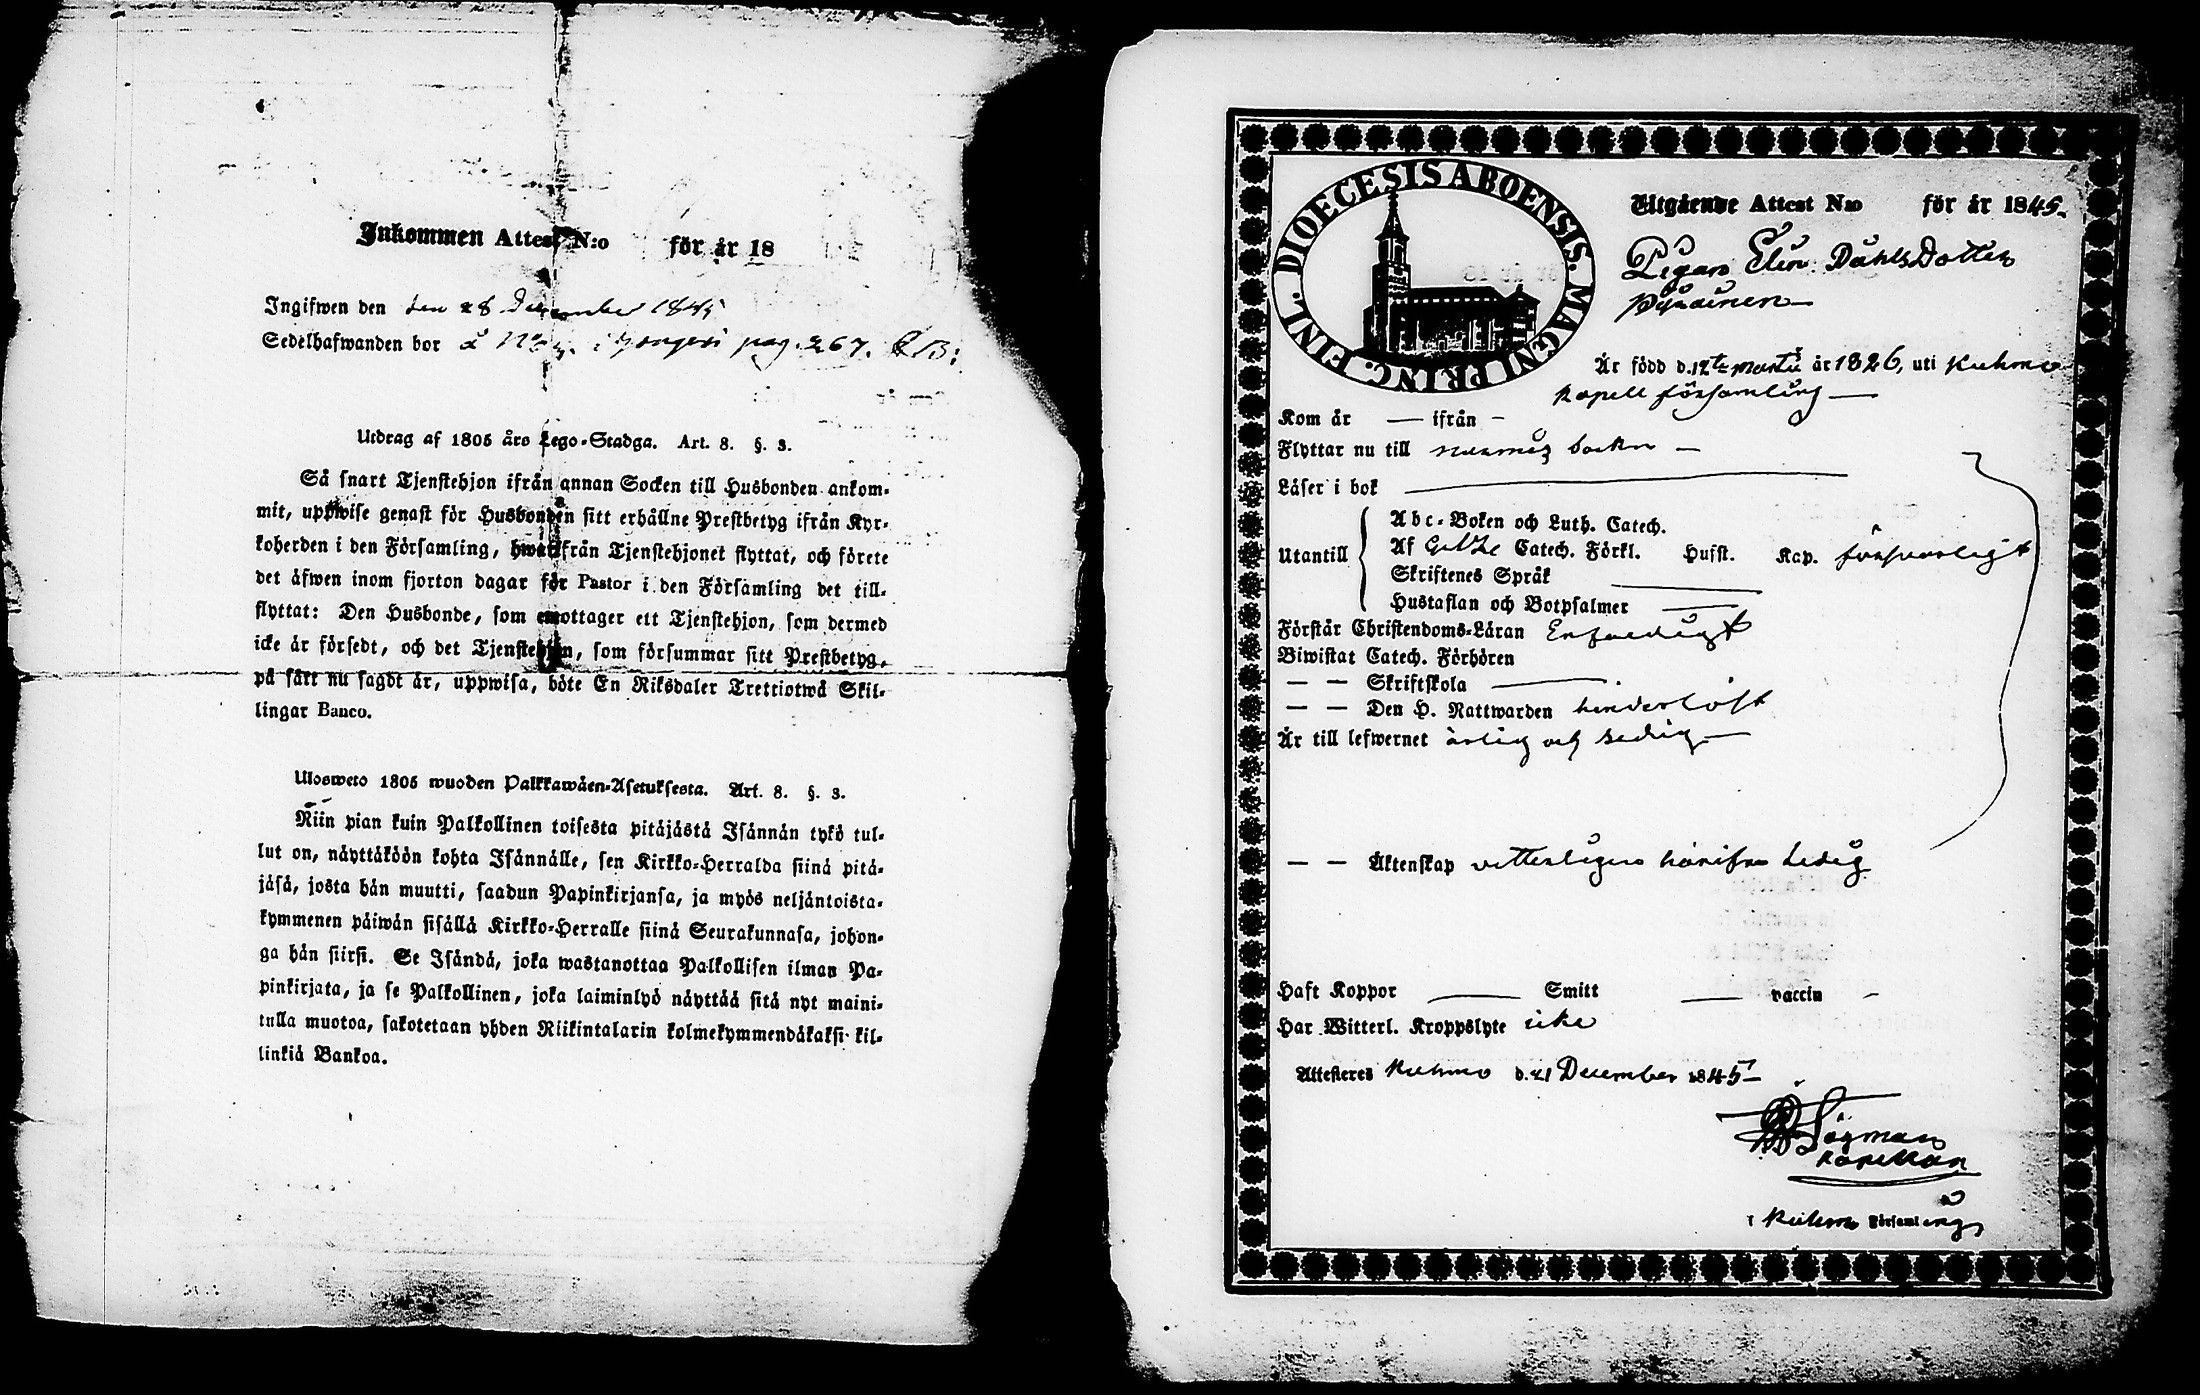 Inkommen Attest N:o för år 18
Ingifwen den den 28 December 1845
Sedelhafwanden bor å N:o i pag. 267.
Utdrag af 1805 års Lego-Stadga. Art. 8. §. 3.
Så snart Tjenstehjon ifrån annan Socken till Husbonden ankom-
mit, uppwise genast för Husbonden sitt erhållne Prestbetyg ifrån Kyr-
koherden i den Församling, hwarifrån Tjenstehjonet flyttat, och förete
det äfwen inom fjorton dagar för Pastor i den Församling det till-
flyttat: Den Husbonde, som emottager ett Tjenstehjon, som dermed
icke är försedt, och det Tjenstehjon, som försummar sitt Prestbetyg,
på sätt nu sagdt är, uppwisa, böte En Riksdaler Trettiotwå Skil-
lingar Banco.
Ulosweto 1805 wuoden Palkkawäen-Asetuksesta. Art. 8. §. 3.
Niin pian kuin Palkollinen toisesta pitäjästä Isännän tykö tul-
lut on, näyttäköön kohta Isännälle, sen Kirkko-Herralda siinä pitä-
jäsä, josta hän muutti, saadun Papinkirjansa, ja myös neljäntoista-
kymmenen päiwän sisällä Kirkko-Herralle siinä Seurakunnasa, johon-
ga hän siirsi. Se Isändä, joka wastanottaa Palkollisen ilman Pa-
pinkirjata, ja se Palkollinen, joka laiminlyö näyttää sitä nyt maini-
tulla muotoa, sakotetaan yhden Riikintalarin kolmekymmendäkaksi kil-
linkiä Bankoa.
DIOECESIS ABOENSIS. MAGNI PRINC. FINL.
Utgående Attest N:o för år 1845.
Pigan Elin DahlsDotter
Är född d. 12te Martii år 1826, uti Kuhmo
Kapell församling
Kom år — ifrån —
Flyttar nu till Nurmis Sockn —
Läser i bok
Abc-Boken och Luth. Catech.
Utantill Af Catech. Förkl. Husst. Kap. försvarligt
Skriftenes Språk
Hustaflan och Botpsalmer
Förstår Christendoms-Läran Enfaldigt
Biwistat Catech. Förhören
— — Skriftskola
— — Den H. Nattwarden hinderlöst
Är till lefwernet ärlig och sedig
— — Äktenskap vetterligen härifrån Ledig
Haft Koppor Smitt vaccin
Har Witterl. Kroppslyte icke
Attesteres Kuhmo d. 21 December 1845
Kapellan
i Kuhmo Församlings